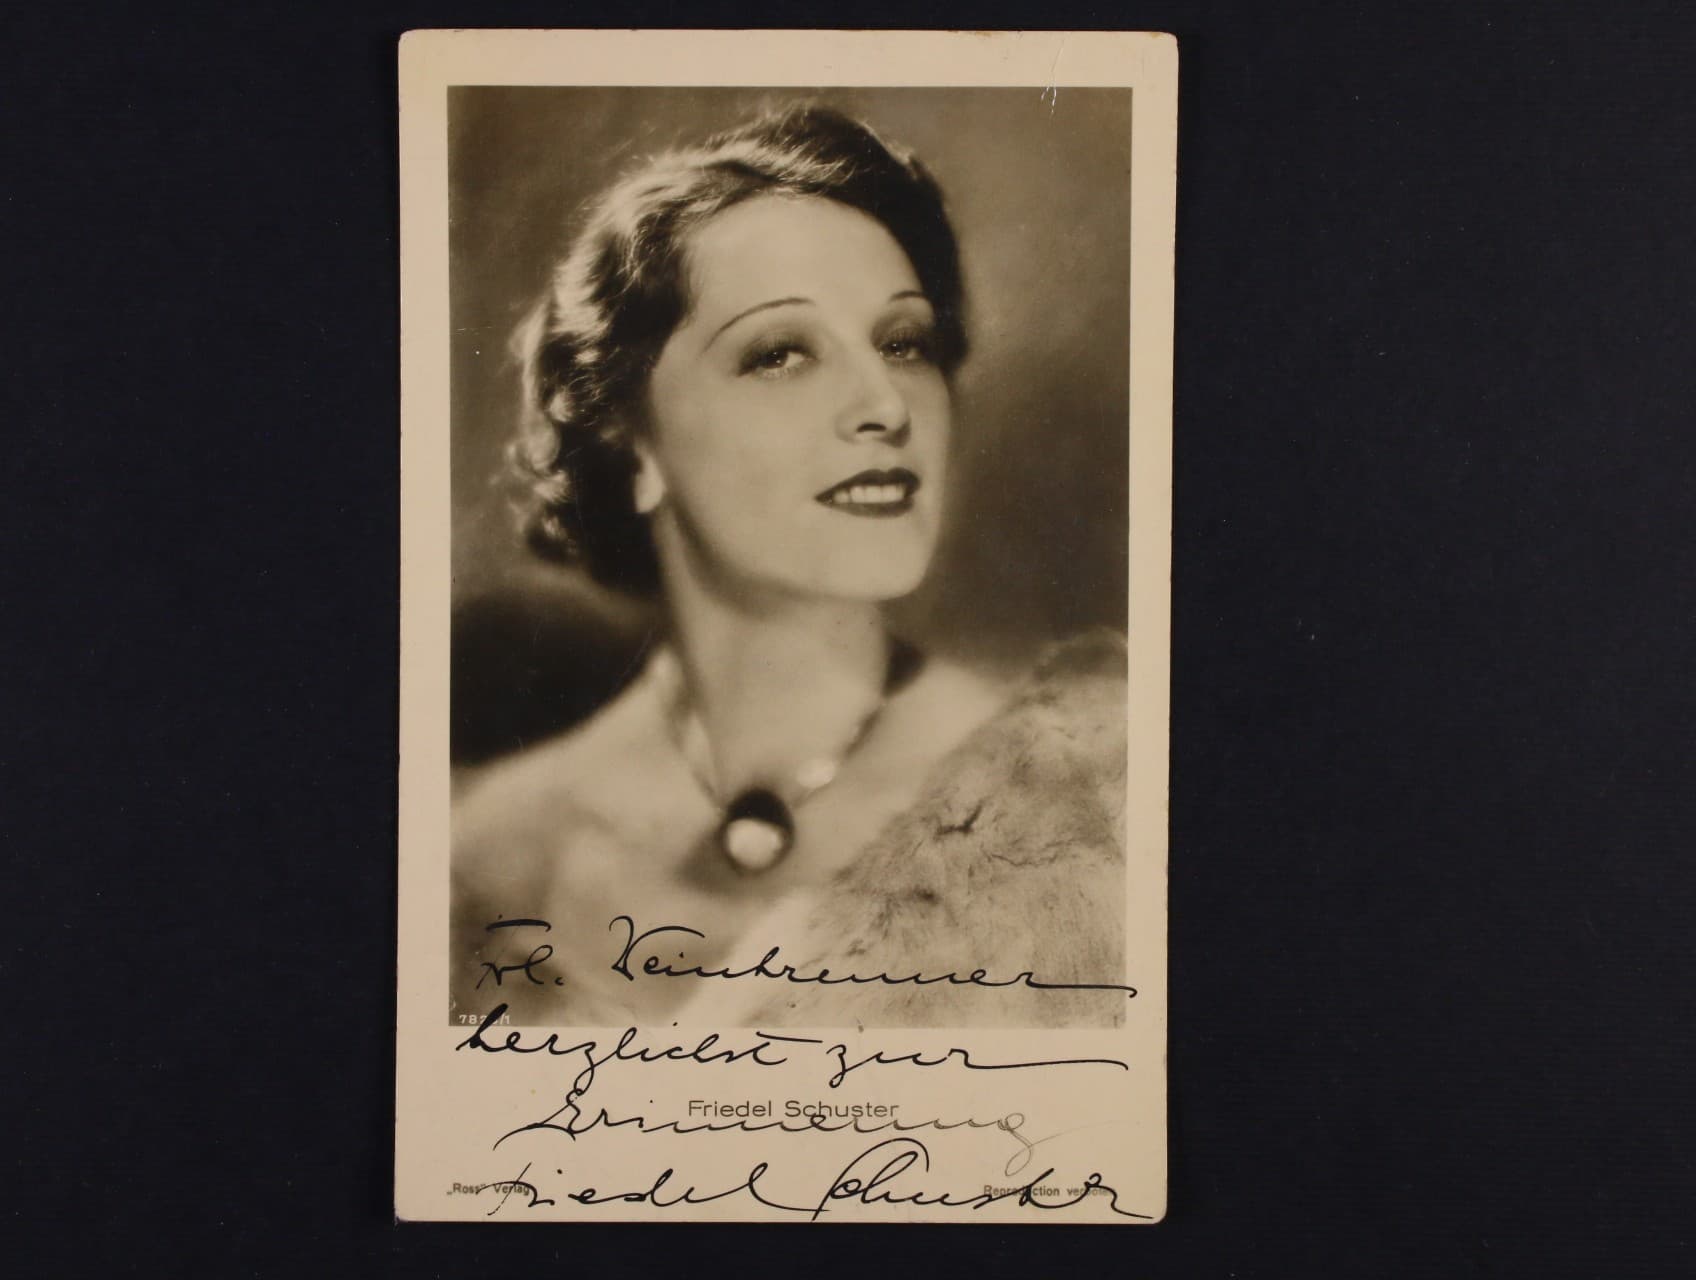 Frl. Weinbrenner
herzlichst zur
Friedel Schuster
Erinnerung
„Ross" Verlag
Reproduction verboten
Friedel Schuster